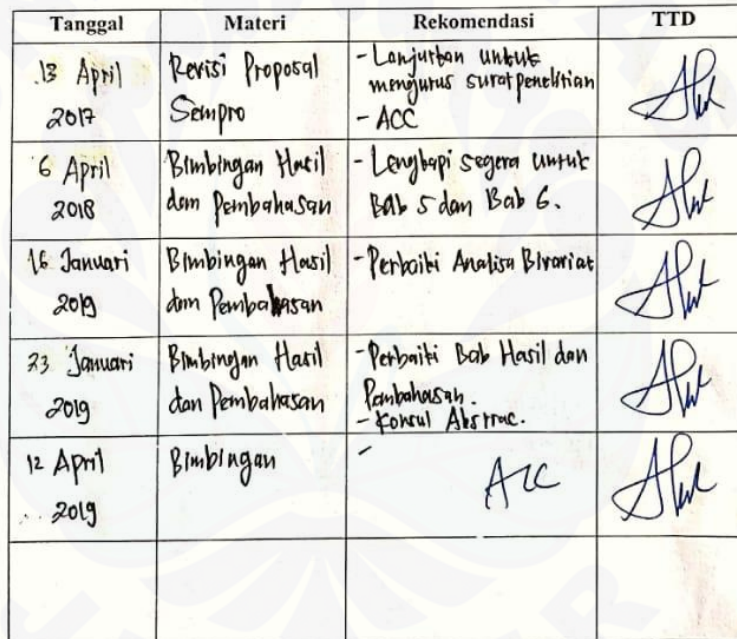 Tanggal Materi Rekomendasi TTD
13 April
2017
Revisi Proposal
Sempro
- Lanjutkan untuk
mengurus surat penelitian
- ACC
6 April
2018
Bimbingan Hasil
dan Pembahasan
- Lengkapi segera untuk
Bab 5 dan Bab 6.
16 Januari
2019
Bimbingan Hasil
dan Pembahasan
- Perbaiki Analisa Bivariat
23 Januari
2019
Bimbingan Hasil
dan Pembahasan
- Perbaiki Bab Hasil dan
Pembahasan.
- Konsul Abstrac.
12 April
2019
Bimbingan
- ACC